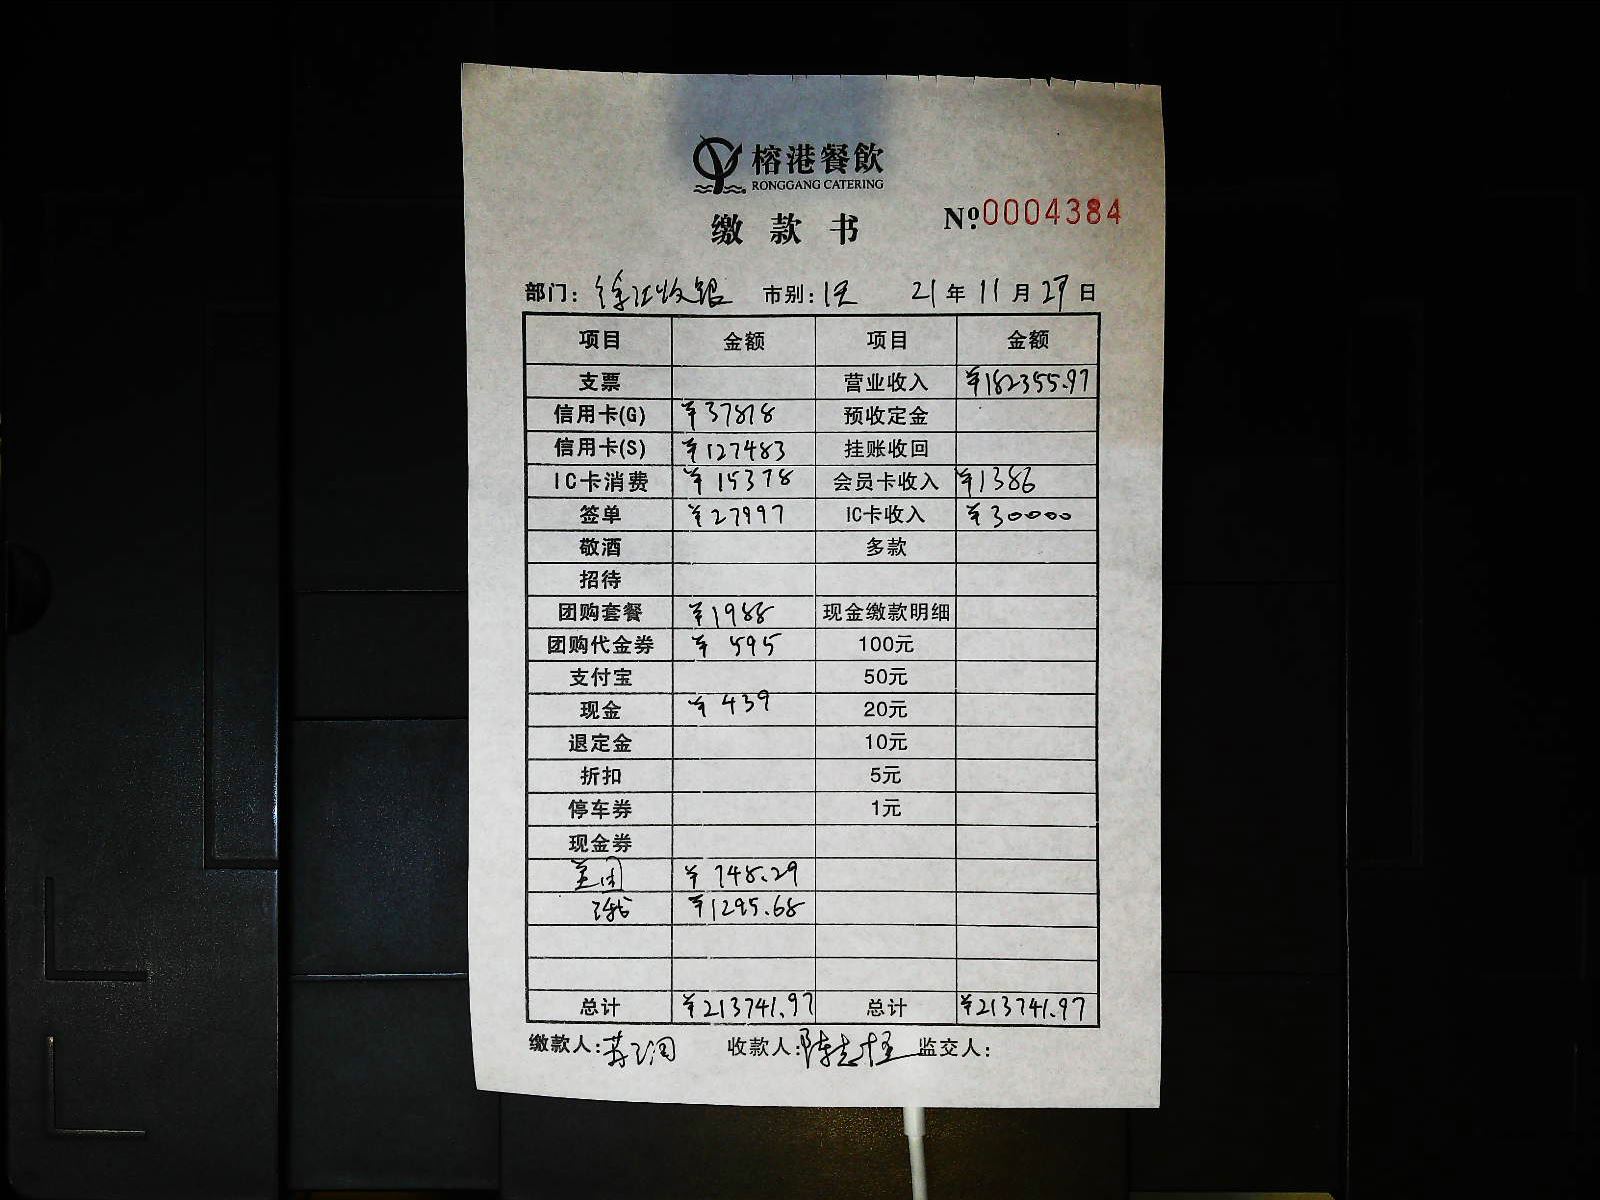 榕港餐飲
RONGGANG CATERING
缴款书 №0004384
部门：徐汇收银 市别： 21年11月29日
项目 金额 项目 金额
支票 营业收入 ¥182355.97
信用卡(G) ¥37818 预收定金
信用卡(S) ¥127483 挂账收回
IC卡消费 ¥15378 会员卡收入 ¥1386
签单 ¥27997 IC卡收入 ¥30000
敬酒 多款
招待
团购套餐 ¥1988 现金缴款明细
团购代金券 ¥595 100元
支付宝 50元
现金 ¥439 20元
退定金 10元
折扣 5元
停车券 1元
现金券
美团 ¥748.29
¥1295.68
总计 ¥213741.97 总计 ¥213741.97
缴款人： 收款人： 监交人：